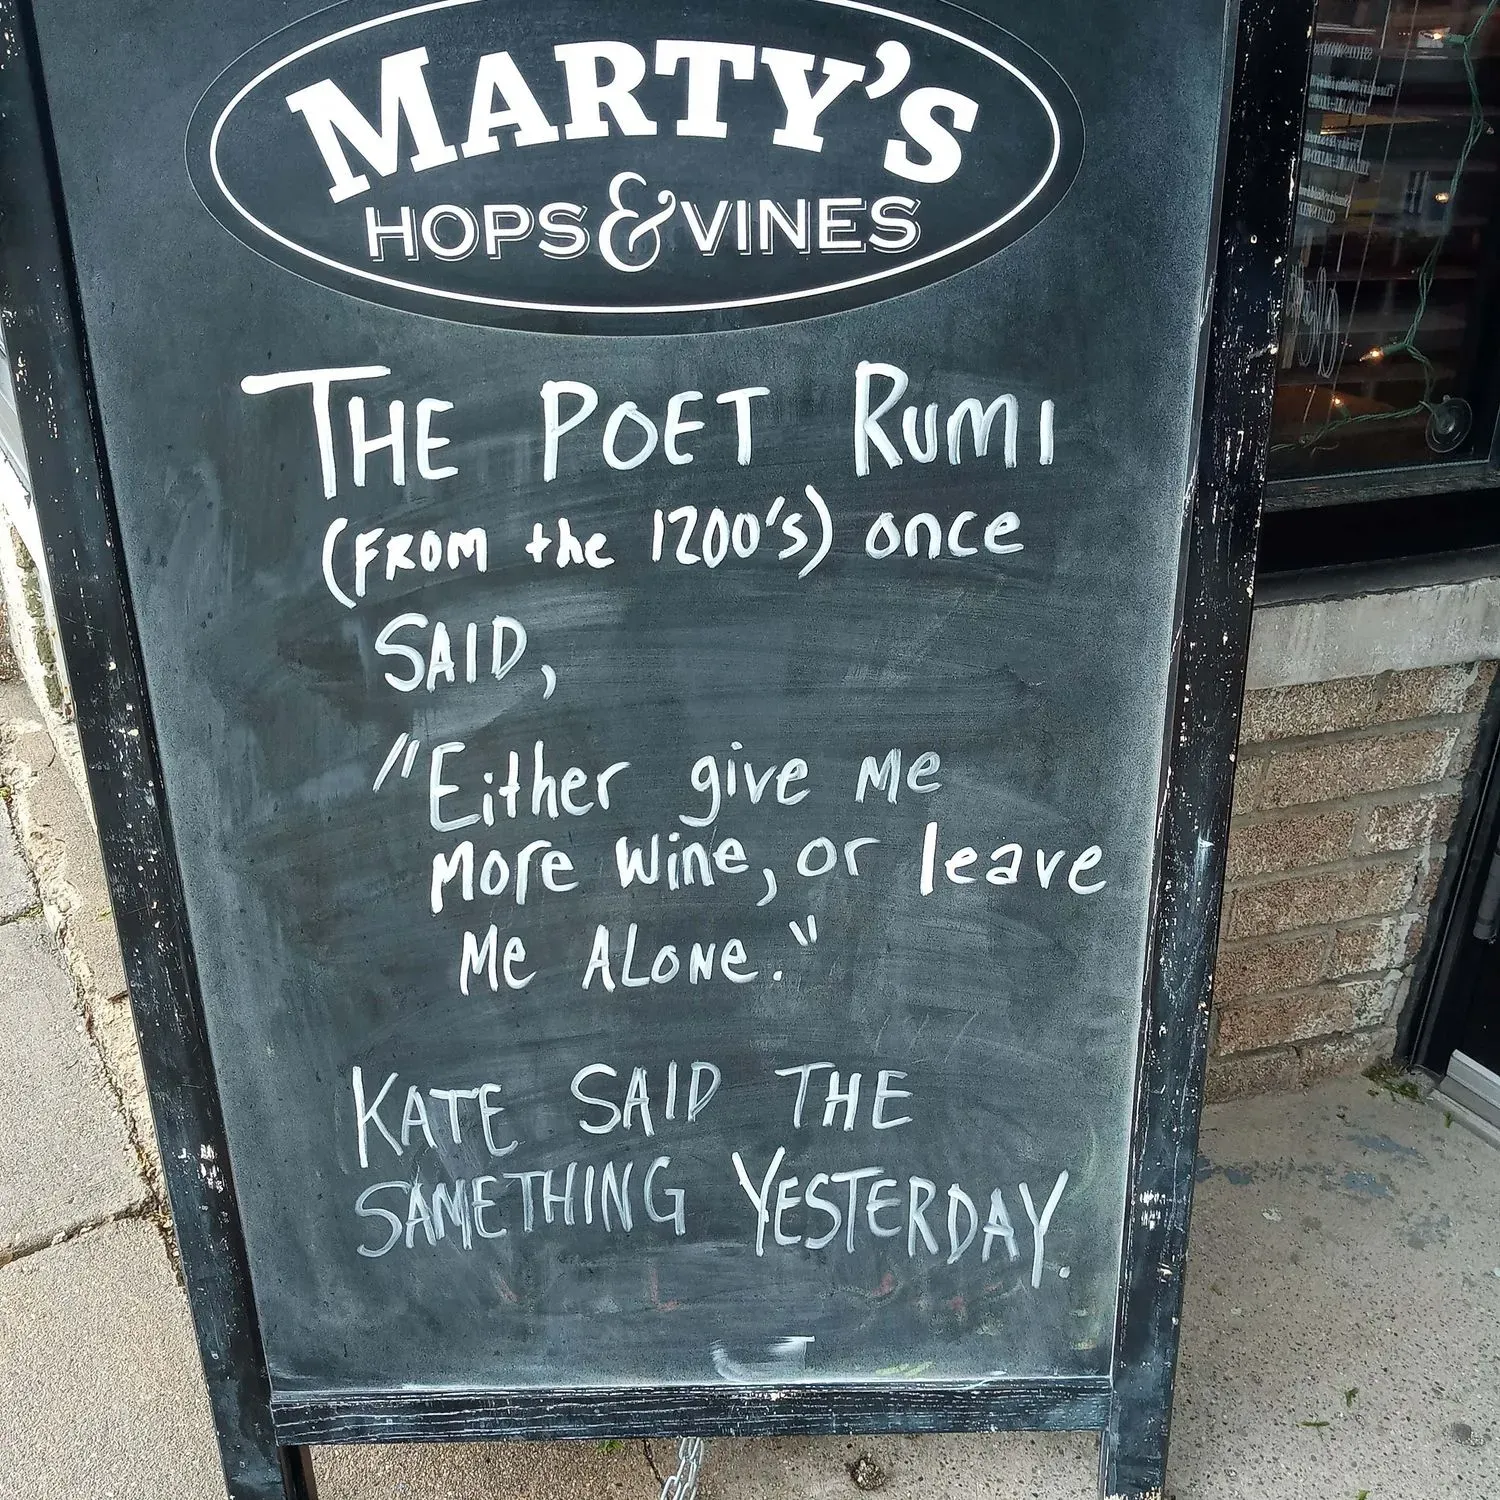 MARTY'S
HOPS & VINES
THE POET RUMI
(FROM the 1200's) once
SAID,
"Either give me
more wine, or leave
me ALONE."
KATE SAID THE
SAMETHING YESTERDAY.